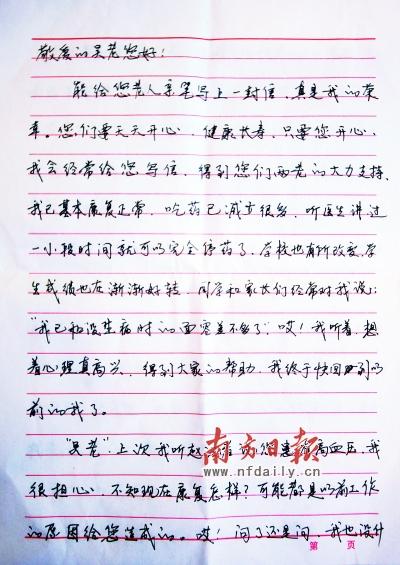 敬爱的吴老您好！
能给您老人亲笔写上一封信，真是我的荣
幸。您们要天天开心，健康长寿，只要您开心，
我会经常给您写信，得到您们两老的大力支持，
我已基本康复正常，吃药已减立很多，听医生讲过
一小段时间就可以完全停药了，学校也有所改变，学
生成绩也在渐渐好转，同学和家长们经常对我说：
"我已和没生病时的面容差不多了"，哎！我听着，想
着心理真高兴，得到大家的帮助，我终于快回到以
前的我了。
"吴老"上次我听赵 您患有高血压，我
很担心，不知现在康复怎样？可能都是以前工作
的原因给您造成的。哎！问了还是问，我也没什
南方日報
www.nfdaily.cn
第 页